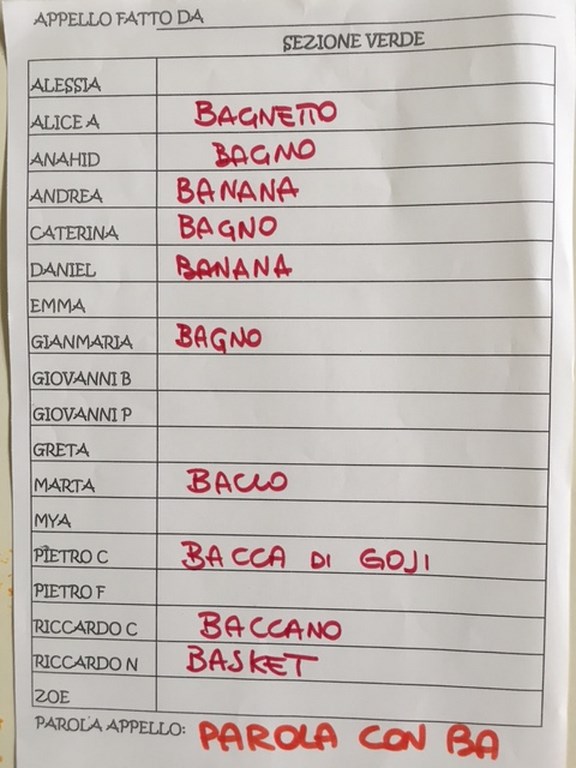 APPELLO FATTO DA
SEZIONE VERDE
ALESSIA
ALICE A BAGNETTO
ANAHID BAGNO
ANDREA BANANA
CATERINA BAGNO
DANIEL BANANA
EMMA
GIANMARIA BAGNO
GIOVANNI B
GIOVANNI P
GRETA
MARTA BACIO
MYA
PIETRO C BACCA DI GOJI
PIETRO F
RICCARDO C BACCANO
RICCARDO N BASKET
ZOE
PAROLA APPELLO: PAROLA CON BA